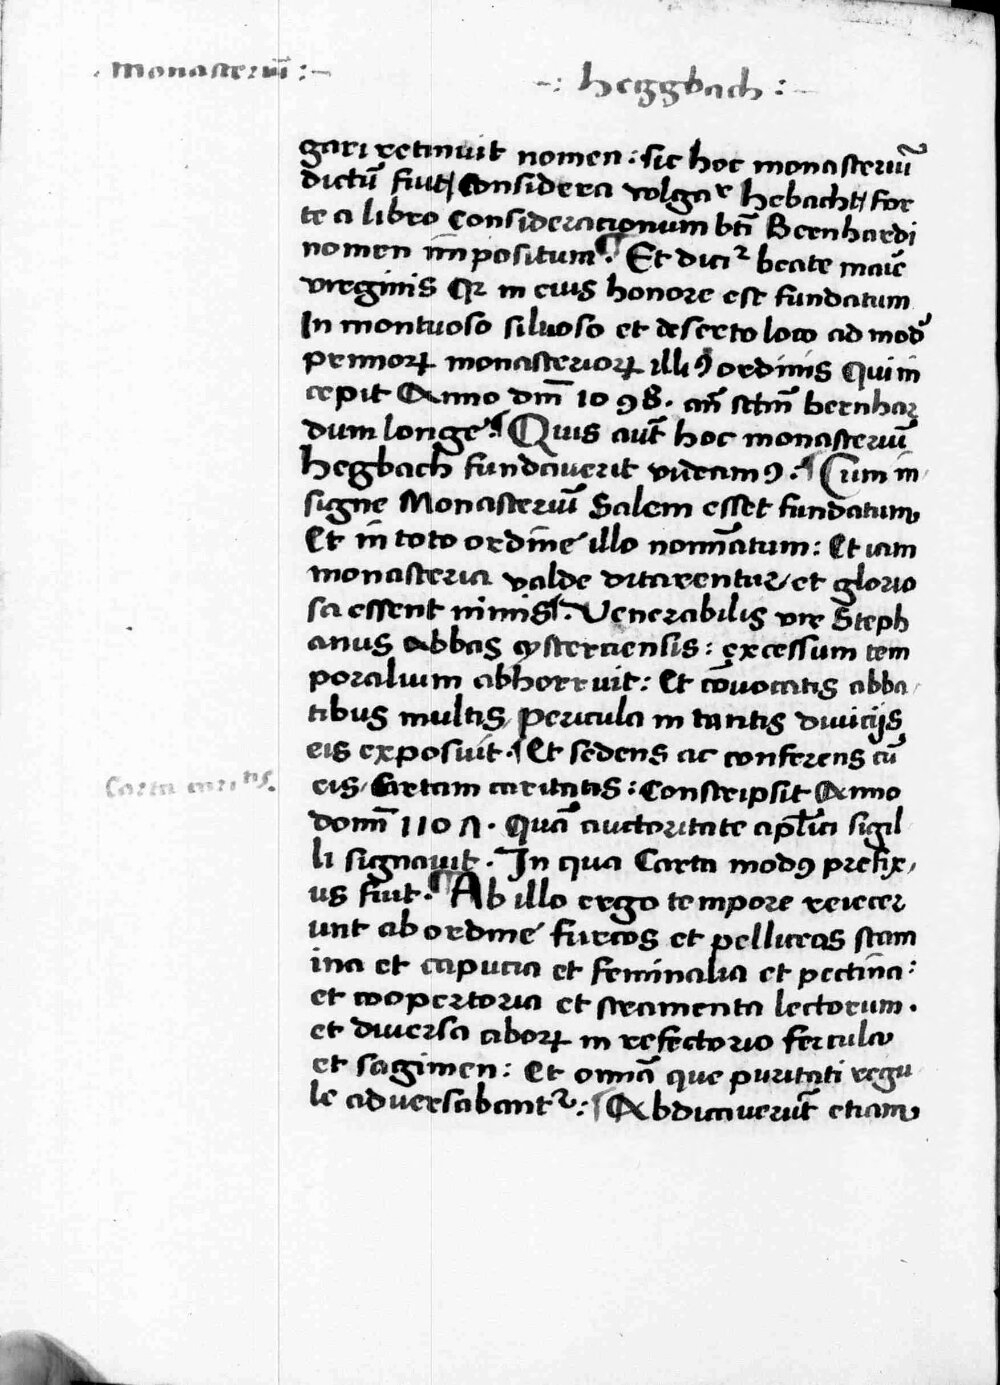 monasteriū :-
-: heggbach :-
gari retinuit nomen : sic hoc monasteriū
dictū fuit / Considera volgar hebacht / for
te a libro Consideracionum bti Bernhardi
nomen īmpositum . ¶ Et dicir beate maīe
virginis Qr in eius honore est fundatum
In montuoso siluoso et deserto loco ad modū
primorꝝ monasteriorꝝ illiꝰ ordinis Qui in
cepit Anno dm̄ 1098 . an̄ sctm̄ bernhar
dum longe . ¶ Quis aut̄ hoc monasteriū
hegbach fundauerit videamꝰ . ¶ Cum in
signe Monasteriū Salem esset fundatum
Et in toto ordine illo nomīatum : Et iam
monasteria valde ditarentur / et glorio
sa essent nimis . Venerabilis vir Steph
anus Abbas cystertiensis : excessum tem
poralium abhorruit : Et cōuocatis abba
tibus multis / pericula in tantis diuicijs
eis exposuit . ¶ Et sedens ac conferens cū
Carta caritatis .
eis / Cartam caritatis : Conscripsit Anno
domī 1107 . Quā auctoritate apl̄ica sigil
li signauit . In qua Carta modꝰ prefix
us fuit . ¶ Ab illo ergo tempore reiecer
unt ab ordine furcos et pelliceas stam
ina et caputia et feminalia et pectina :
et coopertoria et stramenta lectorum .
et diuersa ciborꝝ in refectorio fercula
et sagimen : Et omīa que puritati regu
le aduersabantr : ¶ Abdicauerūt etiam